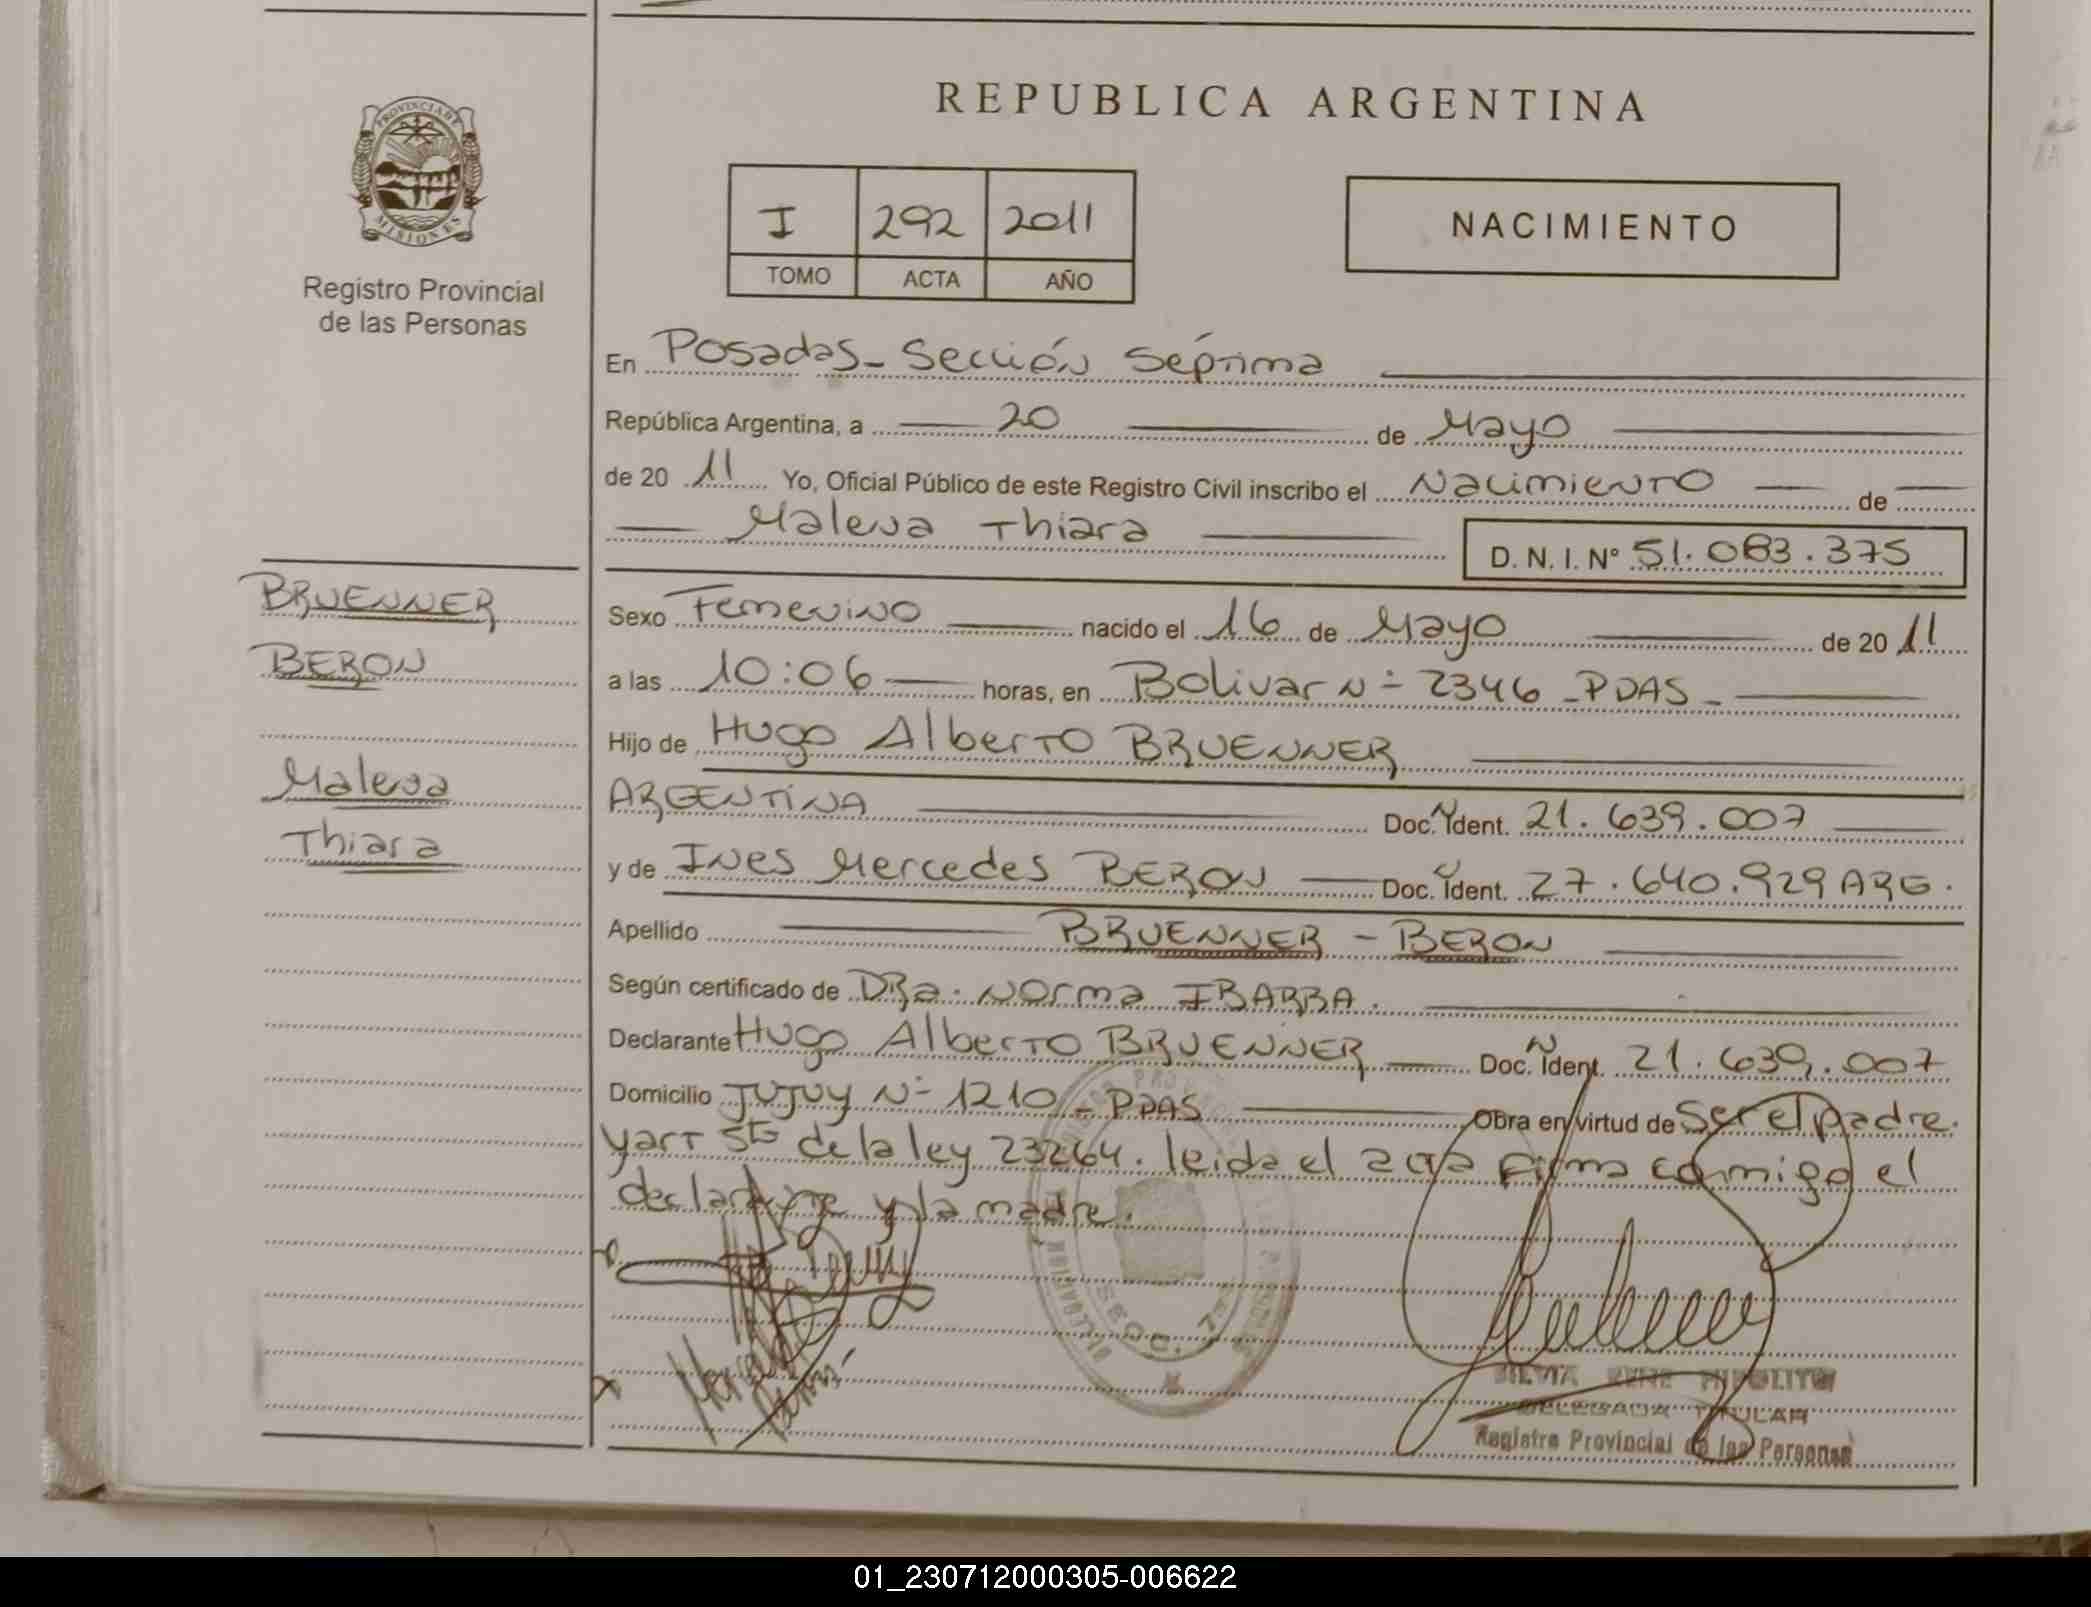 REPUBLICA ARGENTINA
PROVINCIA DE
MISIONES
Registro Provincial
de las Personas
I 292 2011
TOMO ACTA AÑO
NACIMIENTO
En Posadas - Sección Séptima
República Argentina, a 20 de Mayo
de 20 11 Yo, Oficial Público de este Registro Civil inscribo el Nacimiento de
Maleva Thiara D. N. I. N° 51.083.375
BRUENNER
BERON
Maleva
Thiara
Sexo Femenino nacido el 16 de Mayo de 20 11
a las 10:06 horas, en Bolivar N° 2346 - PDAS -
Hijo de Hugo Alberto BRUENNER
ARGENTINA Doc. Ident. 21.639.007
y de Ines Mercedes BERON Doc. Ident. 27.640.929 ARG.
Apellido BRUENNER - BERON
Según certificado de DRa. Norma IBARRA.
Declarante Hugo Alberto BRUENNER Doc. Ident. 21.639.007
Domicilio JUJUY N° 1210 - PDAS Obra en virtud de Ser el padre.
y art 5to de la ley 23264. leida el acta firma conmigo el
declarante y la madre.
DELEGADA TITULAR
Registro Provincial de las Personas
01_230712000305-006622